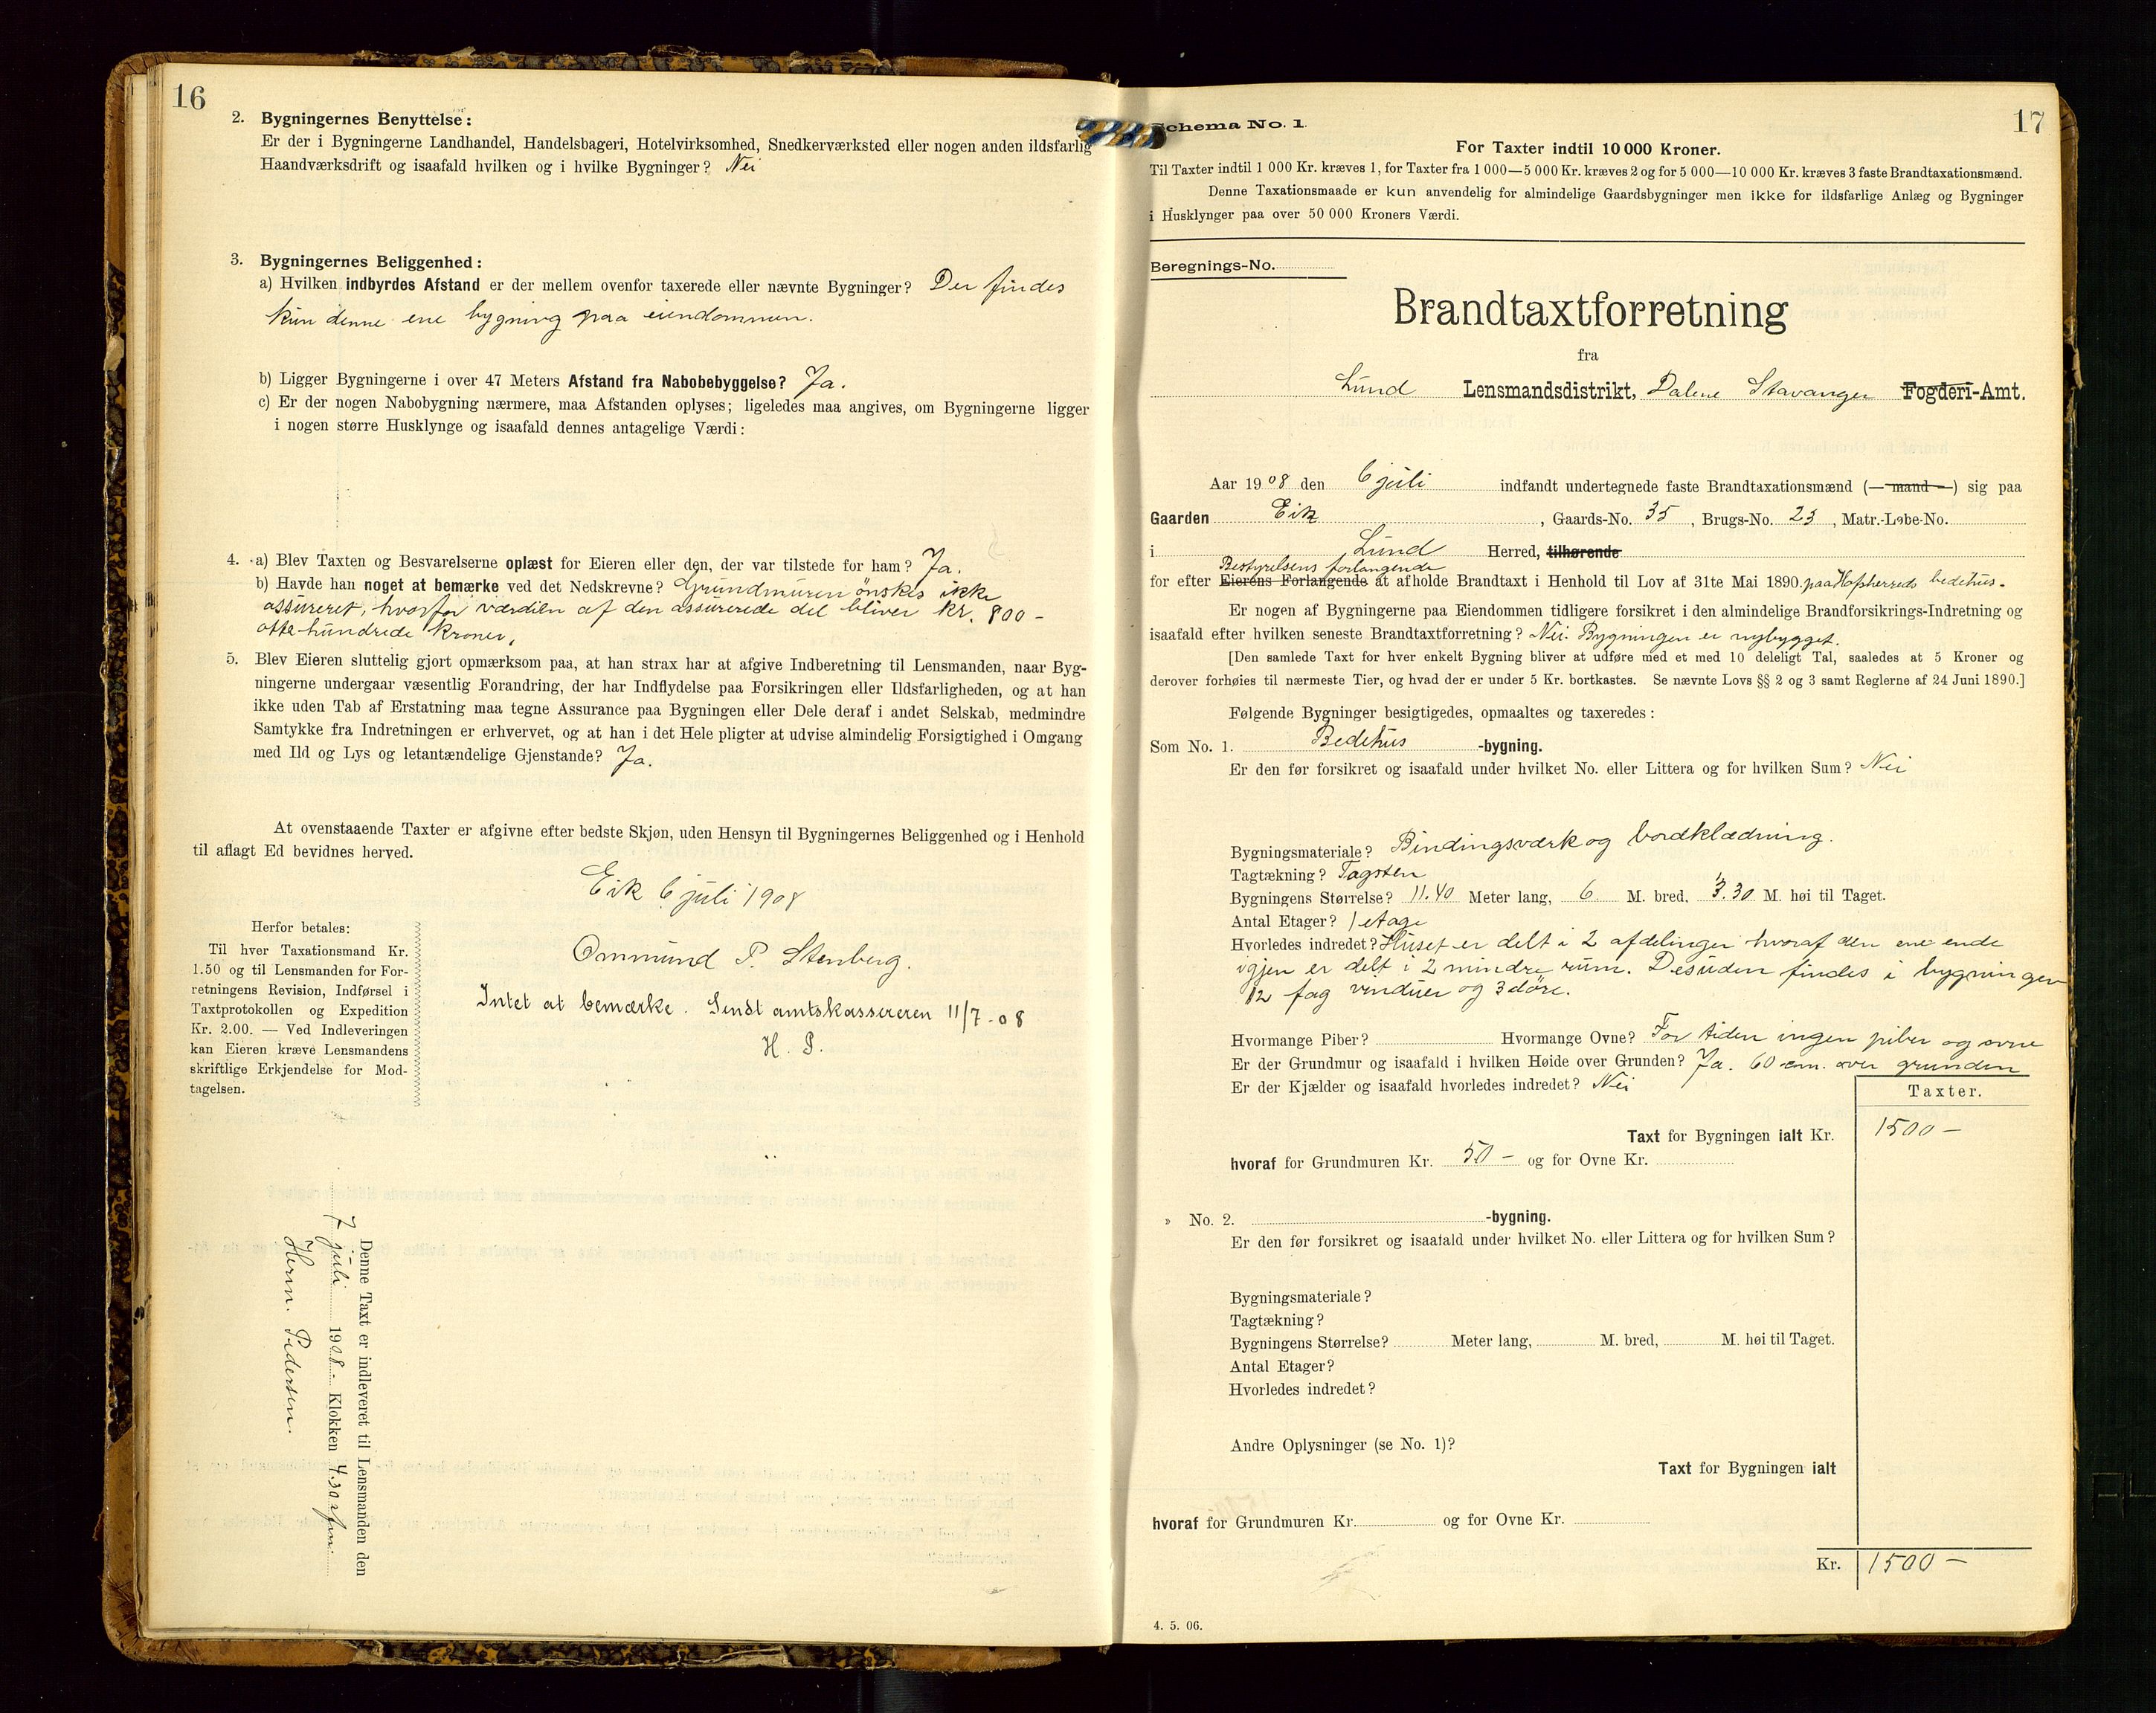 16
2. Bygningernes Benyttelse:
Er der i Bygningerne Landhandel, Handelsbageri, Hotelvirksomhed, Snedkerværksted eller nogen anden ildsfarlig
Haandværksdrift og isaafald hvilken og i hvilke Bygninger? Nei
3. Bygningernes Beliggenhed:
a) Hvilken indbyrdes Afstand er der mellem ovenfor taxerede eller nævnte Bygninger? Der findes
kun denne ene bygning paa eiendommen.
b) Ligger Bygningerne i over 47 Meters Afstand fra Nabobebyggelse? Ja.
c) Er der nogen Nabobygning nærmere, maa Afstanden oplyses; ligeledes maa angives, om Bygningerne ligger
i nogen større Husklynge og isaafald dennes antagelige Værdi:
4. a) Blev Taxten og Besvarelserne oplæst for Eieren eller den, der var tilstede for ham? Ja.
b) Havde han noget at bemærke ved det Nedskrevne? Grundmuren ønskes ikke
assureret, hvorfor værdien af den assurerede del bliver kr. 800 -
otte hundrede kroner.
5. Blev Eieren sluttelig gjort opmærksom paa, at han strax har at afgive Indberetning til Lensmanden, naar Byg-
ningerne undergaar væsentlig Forandring, der har Indflydelse paa Forsikringen eller Ildsfarligheden, og at han
ikke uden Tab af Erstatning maa tegne Assurance paa Bygningen eller Dele deraf i andet Selskab, medmindre
Samtykke fra Indretningen er erhvervet, og at han i det Hele pligter at udvise almindelig Forsigtighed i Omgang
med Ild og Lys og letantændelige Gjenstande? Ja.
At ovenstaaende Taxter er afgivne efter bedste Skjøn, uden Hensyn til Bygningernes Beliggenhed og i Henhold
til aflagt Ed bevidnes herved.
Eik 6 juli 1908
Ommund P. Stenberg.
Intet at bemærke. Sendt amtskassereren 11/7-08
H. P.
Herfor betales:
Til hver Taxationsmand Kr.
1.50 og til Lensmanden for For-
retningens Revision, Indførsel i
Taxtprotokollen og Expedition
Kr. 2.00. — Ved Indleveringen
kan Eieren kræve Lensmandens
skriftlige Erkjendelse for Mod-
tagelsen.
Denne Taxt er indleveret til Lensmanden den
7 juli 1908 Klokken 4.30 efm.
Herm. Pedersen.
17
Schema No. 1.
For Taxter indtil 10 000 Kroner.
Til Taxter indtil 1 000 Kr. kræves 1, for Taxter fra 1 000—5 000 Kr. kræves 2 og for 5 000—10 000 Kr. kræves 3 faste Brandtaxationsmænd.
Denne Taxationsmaade er kun anvendelig for almindelige Gaardsbygninger men ikke for ildsfarlige Anlæg og Bygninger
i Husklynger paa over 50 000 Kroners Værdi.
Beregnings-No.
Brandtaxtforretning
fra
Lund Lensmandsdistrikt, Dalene Stavanger Fogderi-Amt.
Aar 1908 den 6 juli indfandt undertegnede faste Brandtaxationsmænd (— mand —) sig paa
Gaarden Eik, Gaards-No. 35, Brugs-No. 23, Matr.-Løbe-No.
i Lund Herred, tilhørende
Bestyrelsens forlangende
for efter Eierens Forlangende at afholde Brandtaxt i Henhold til Lov af 31te Mai 1890. paa Hofsherreds bedehus.
Er nogen af Bygningerne paa Eiendommen tidligere forsikret i den almindelige Brandforsikrings-Indretning og
isaafald efter hvilken seneste Brandtaxtforretning? Nei. Bygningen er nybygget.
[Den samlede Taxt for hver enkelt Bygning bliver at udføre med et med 10 deleligt Tal, saaledes at 5 Kroner og
derover forhøies til nærmeste Tier, og hvad der er under 5 Kr. bortkastes. Se nævnte Lovs §§ 2 og 3 samt Reglerne af 24 Juni 1890.]
Følgende Bygninger besigtigedes, opmaaltes og taxeredes:
Som No. 1. Bedehus -bygning.
Er den før forsikret og isaafald under hvilket No. eller Littera og for hvilken Sum? Nei
Bygningsmateriale? Bindingsværk og bordklædning.
Tagtækning? Tagsten
Bygningens Størrelse? 11.40 Meter lang, 6 M. bred, 3.30 M. høi til Taget.
Antal Etager? 1 etage
Hvorledes indredet? Huset er delt i 2 afdelinger hvoraf den ene ende
igjen er delt i 2 mindre rum. Desuden findes i bygningen
12 fag vinduer og 3 døre.
Hvormange Piber? Hvormange Ovne? For tiden ingen piber og ovne
Er der Grundmur og isaafald i hvilken Høide over Grunden? Ja. 60 cm. over grunden
Er der Kjælder og isaafald hvorledes indredet? Nei
Taxter.
Taxt for Bygningen ialt Kr. 1500 —
hvoraf for Grundmuren Kr. 50 — og for Ovne Kr.
» No. 2. -bygning.
Er den før forsikret og isaafald under hvilket No. eller Littera og for hvilken Sum?
Bygningsmateriale?
Tagtækning?
Bygningens Størrelse? Meter lang, M. bred, M. høi til Taget.
Antal Etager?
Hvorledes indredet?
Andre Oplysninger (se No. 1)?
Taxt for Bygningen ialt
hvoraf for Grundmuren Kr. og for Ovne Kr.
Kr. 1500 —
4. 5. 06.